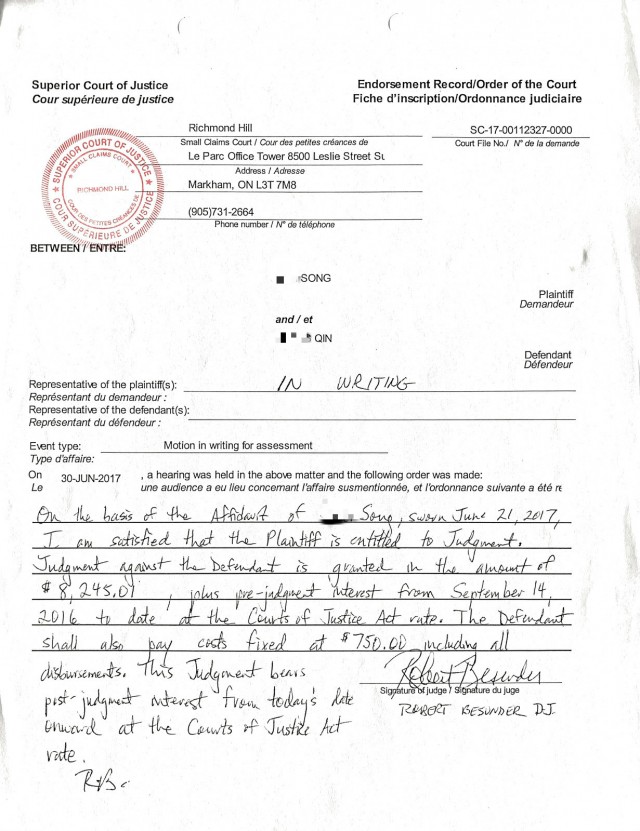 Superior Court of Justice
Cour supérieure de justice
Endorsement Record/Order of the Court
Fiche d'inscription/Ordonnance judiciaire
SUPERIOR COURT OF JUSTICE
SMALL CLAIMS COURT
RICHMOND HILL
COUR DES PETITES CRÉANCES DE
COUR SUPÉRIEURE DE JUSTICE
Richmond Hill
Small Claims Court / Cour des petites créances de
SC-17-00112327-0000
Court File No./ N° de la demande
Le Parc Office Tower 8500 Leslie Street Su
Address / Adresse
Markham, ON L3T 7M8
(905)731-2664
Phone number / N° de téléphone
BETWEEN / ENTRE:
SONG
Plaintiff
Demandeur
and / et
QIN
Defendant
Défendeur
Representative of the plaintiff(s): IN WRITING
Représentant du demandeur :
Representative of the defendant(s):
Représentant du défendeur :
Event type: Motion in writing for assessment
Type d'affaire:
On 30-JUN-2017 , a hearing was held in the above matter and the following order was made:
Le une audience a eu lieu concernant l'affaire susmentionnée, et l'ordonnance suivante a été re
On the basis of the Affidavit of Song, sworn June 21, 2017,
I am satisfied that the Plaintiff is entitled to Judgment.
Judgment against the Defendant is granted in the amount of
$8,245.01, plus pre-judgment interest from September 14,
2016 to date at the Courts of Justice Act rate. The Defendant
shall also pay costs fixed at $750.00 including all
disbursements. This Judgment bears
post-judgment interest from today's date
onward at the Courts of Justice Act
rate.
Robert Besunder
Signature of judge / Signature du juge
ROBERT BESUNDER D.J.